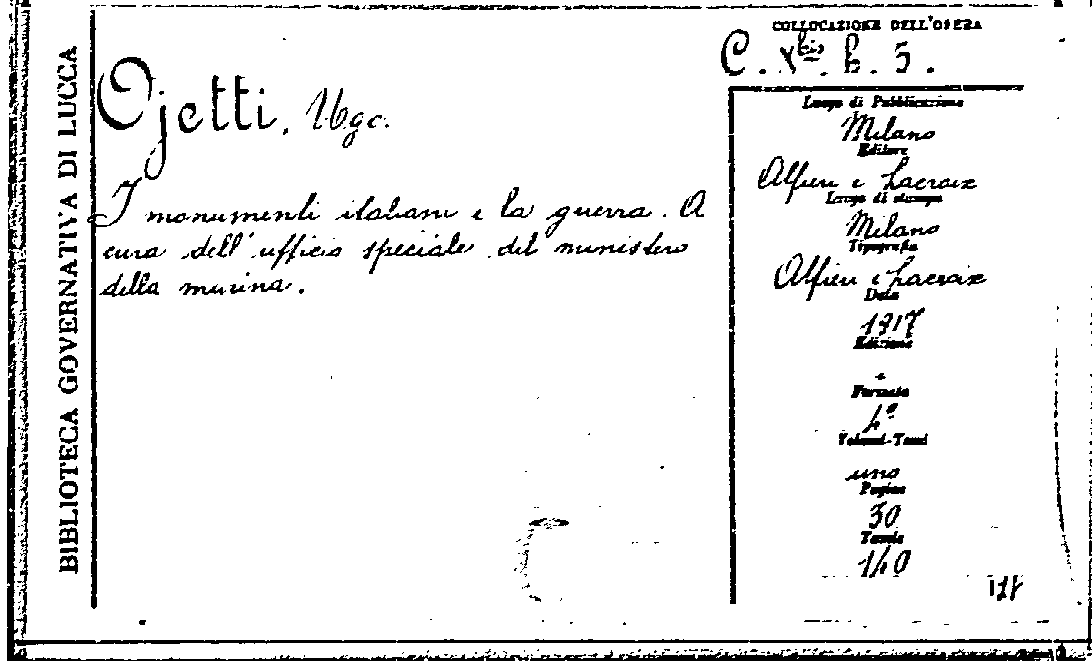 BIBLIOTECA GOVERNATIVA DI LUCCA
COLLOCAZIONE DELL'OPERA
C. X bis. b. 5.
Ojetti, Ugo.
I monumenti italiani e la guerra. A
cura dell'ufficio speciale del ministero
della marina.
Luogo di Pubblicazione
Milano
Editore
Alfieri e Lacroix
Luogo di stampa
Milano
Tipografia
Alfieri e Lacroix
Data
1917
Edizione
Formato
4º
Volumi-Tomi
uno
Pagine
30
Tavole
140